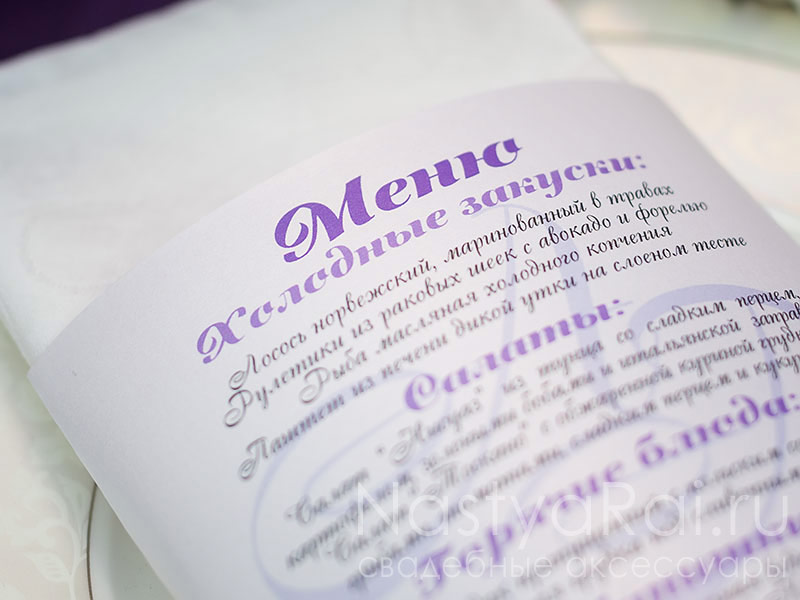 Меню
Холодные закуски:
Лосось норвежский, маринованный в травах
Рулетики из раковых шеек с авокадо и форелью
Рыба масляная холодного копчения
Паштет из печени дикой утки на слоеном тесте
Салаты:
Салат "Нисуаз" из тунца со сладким перцем,
зелеными бобами и итальянской заправ
с обжаренной куриной груд
сладким перцем и кукур
Горячие блюда:
NastyaRai.ru
свадебные аксессуары